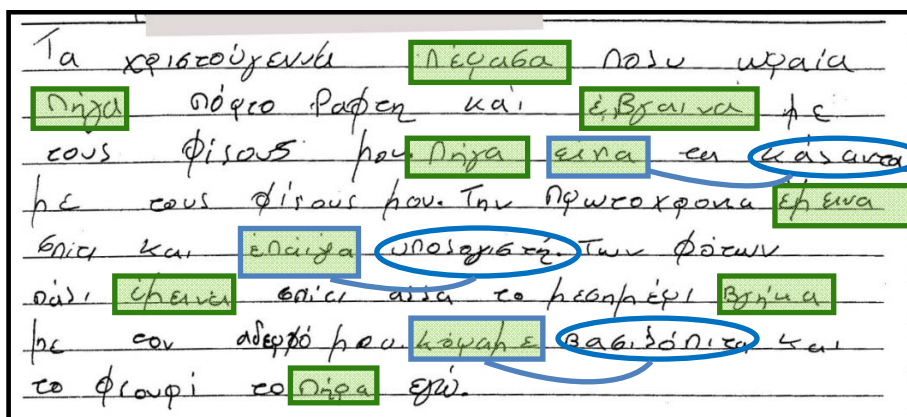 Τα χριστούγεννα πέρασα πολυ ωραία
πήγα πόρτο Ραφτη καί έβγαινά με
τούς φίλους μου. πήγα είπα τα κάλαντα
με τους φίλους μου. Την πρωτοχρονια έμεινα
σπίτι και έπαιγα υπολογιστή. Των φότων
πάλι έμεινα σπίτι αλλα το μεσημέρι βγήκα
με τον αδερφό μου. κόψαμε βασιλόπιτα και
το φλουρί το πήρα εγώ.